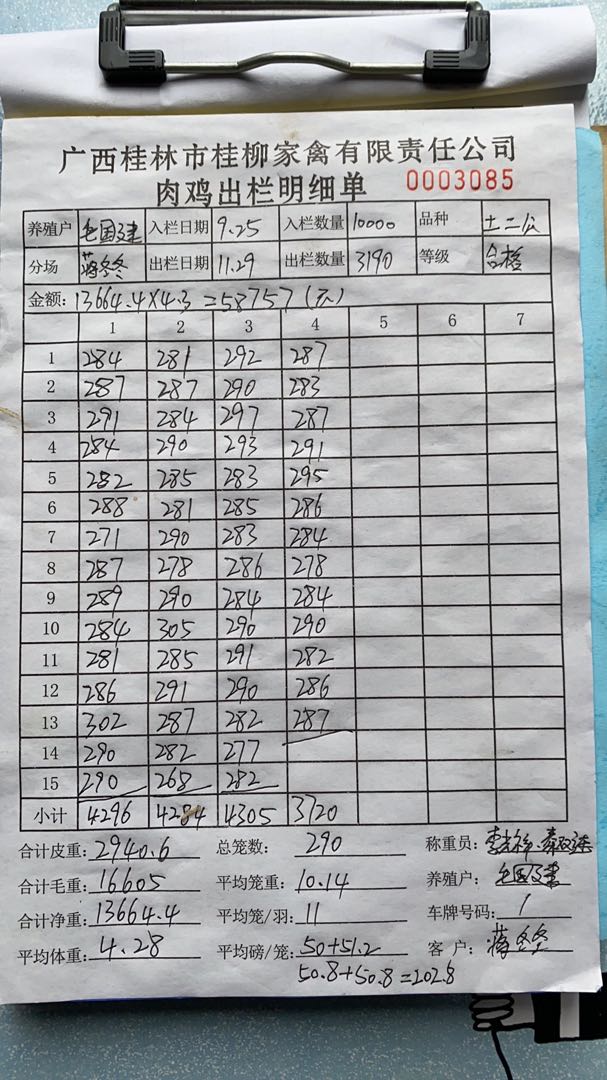 广西桂林市桂柳家禽有限责任公司
肉鸡出栏明细单 0003085
养殖户 毛国建 入栏日期 9.25 入栏数量 10000 品种 土二公
分场 蒋冬冬 出栏日期 11.29 出栏数量 3190 等级 合格
金额: 13664.4×4.3=58757(元)
1 2 3 4 5 6 7
1 284 281 292 287
2 287 287 290 283
3 291 284 297 287
4 284 290 293 291
5 282 285 283 295
6 288 281 285 286
7 271 290 283 284
8 287 278 286 278
9 289 290 284 284
10 284 305 290 290
11 281 285 291 282
12 286 291 290 286
13 302 287 282 287
14 290 282 277
15 290 268 282
小计 4296 4284 4305 3720
合计皮重: 2940.6 总笼数: 290 称重员:
合计毛重: 16605 平均笼重: 10.14 养殖户: 毛国建
合计净重: 13664.4 平均笼/羽: 11 车牌号码: /
平均体重: 4.28 平均磅/笼: 50+51.2 客户: 蒋冬冬
50.8+50.8=202.8